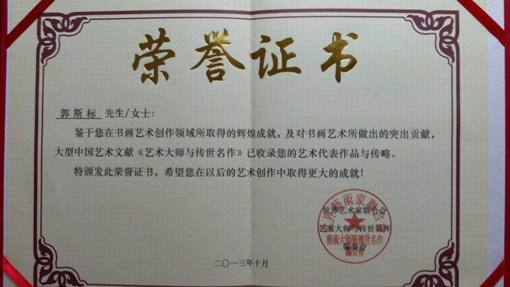 荣誉证书
郭斯标 先生/女士：
鉴于您在书画艺术创作领域所取得的辉煌成就，及对书画艺术所做出的突出贡献，
大型中国艺术文献《艺术大师与传世名作》已收录您的艺术代表作品与传略。
特颁发此荣誉证书，希望您在以后的艺术创作中取得更大的成就！
世界艺术家联合会
艺术大师与传世名作
编委会
二〇一三年十月